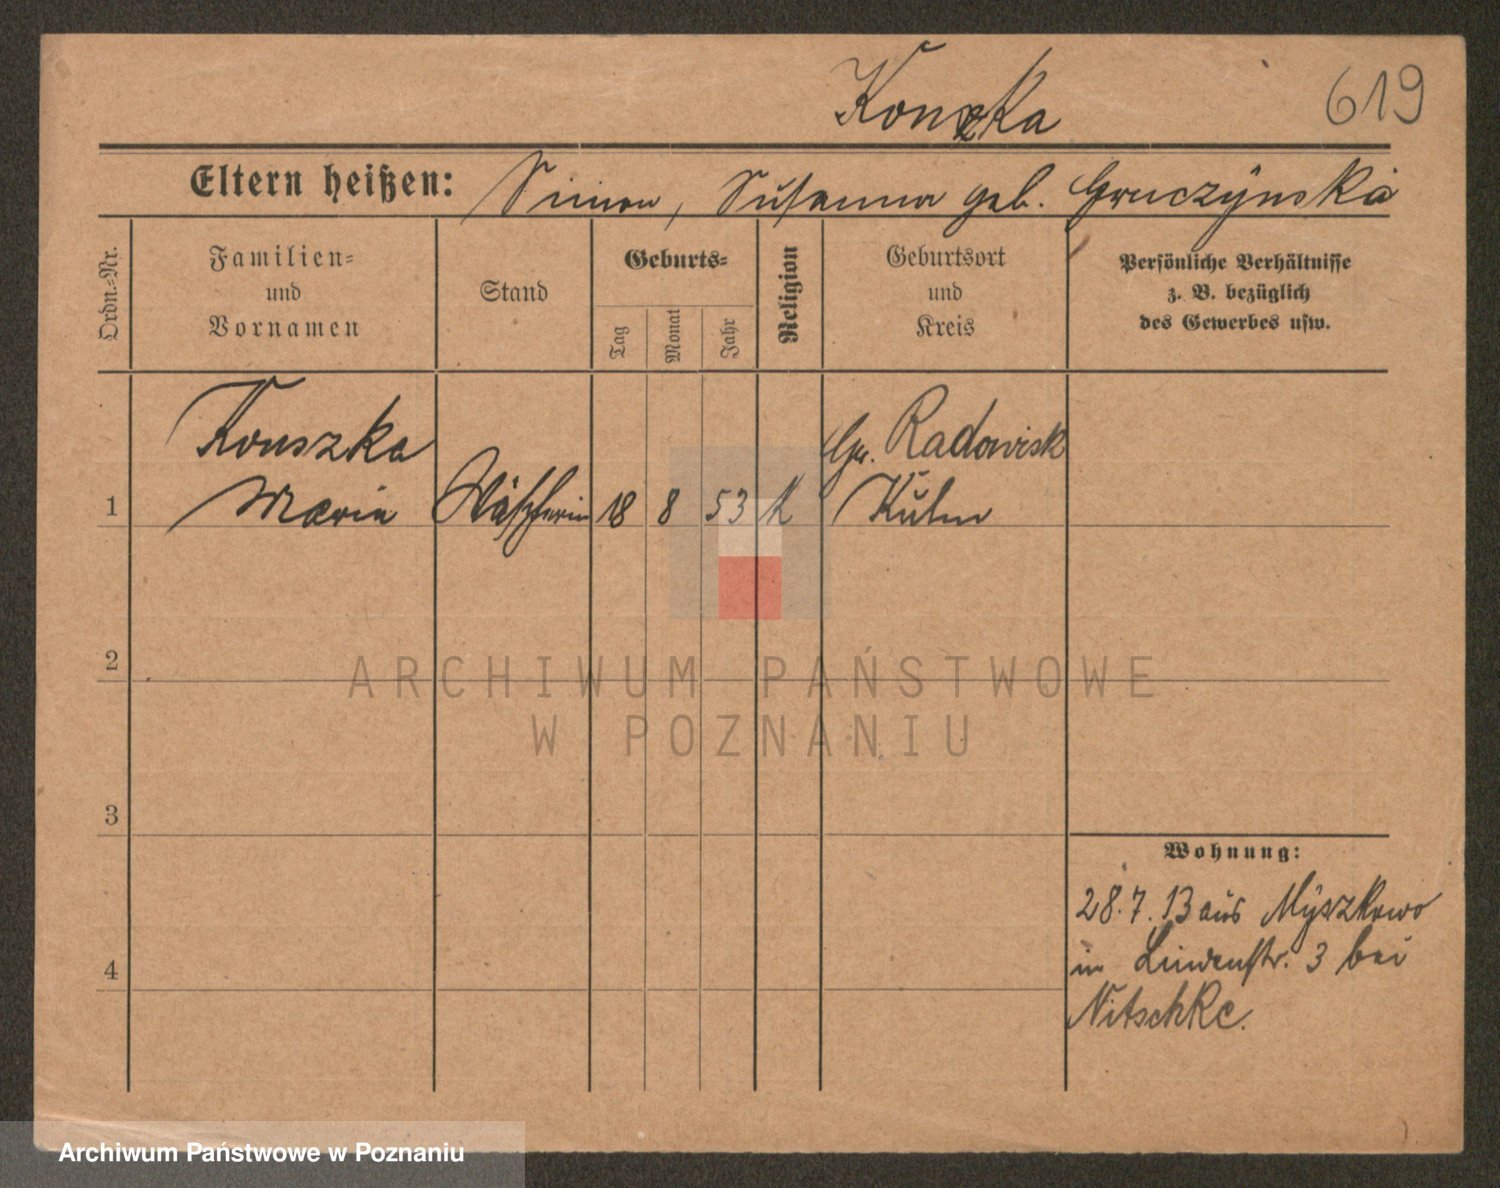 Konszka
619
Eltern heißen: Simon, Susanna geb. Gruczýnska
Ordn.-Nr.
Familien-
und
Vornamen
Stand
Geburts-
Tag
Monat
Jahr
Religion
Geburtsort
und
Kreis
Persönliche Verhältnisse
z. B. bezüglich
des Gewerbes usw.
Konszka Gr. Radowisk
1 Maria Wäscherin 18 8 53 K Kulm
2
3
4
Wohnung:
28.7.13 aus Mÿszkowo
in Lindenstr. 3 bei
Nitschke.
ARCHIWUM PAŃSTWOWE
W POZNANIU
Archiwum Państwowe w Poznaniu